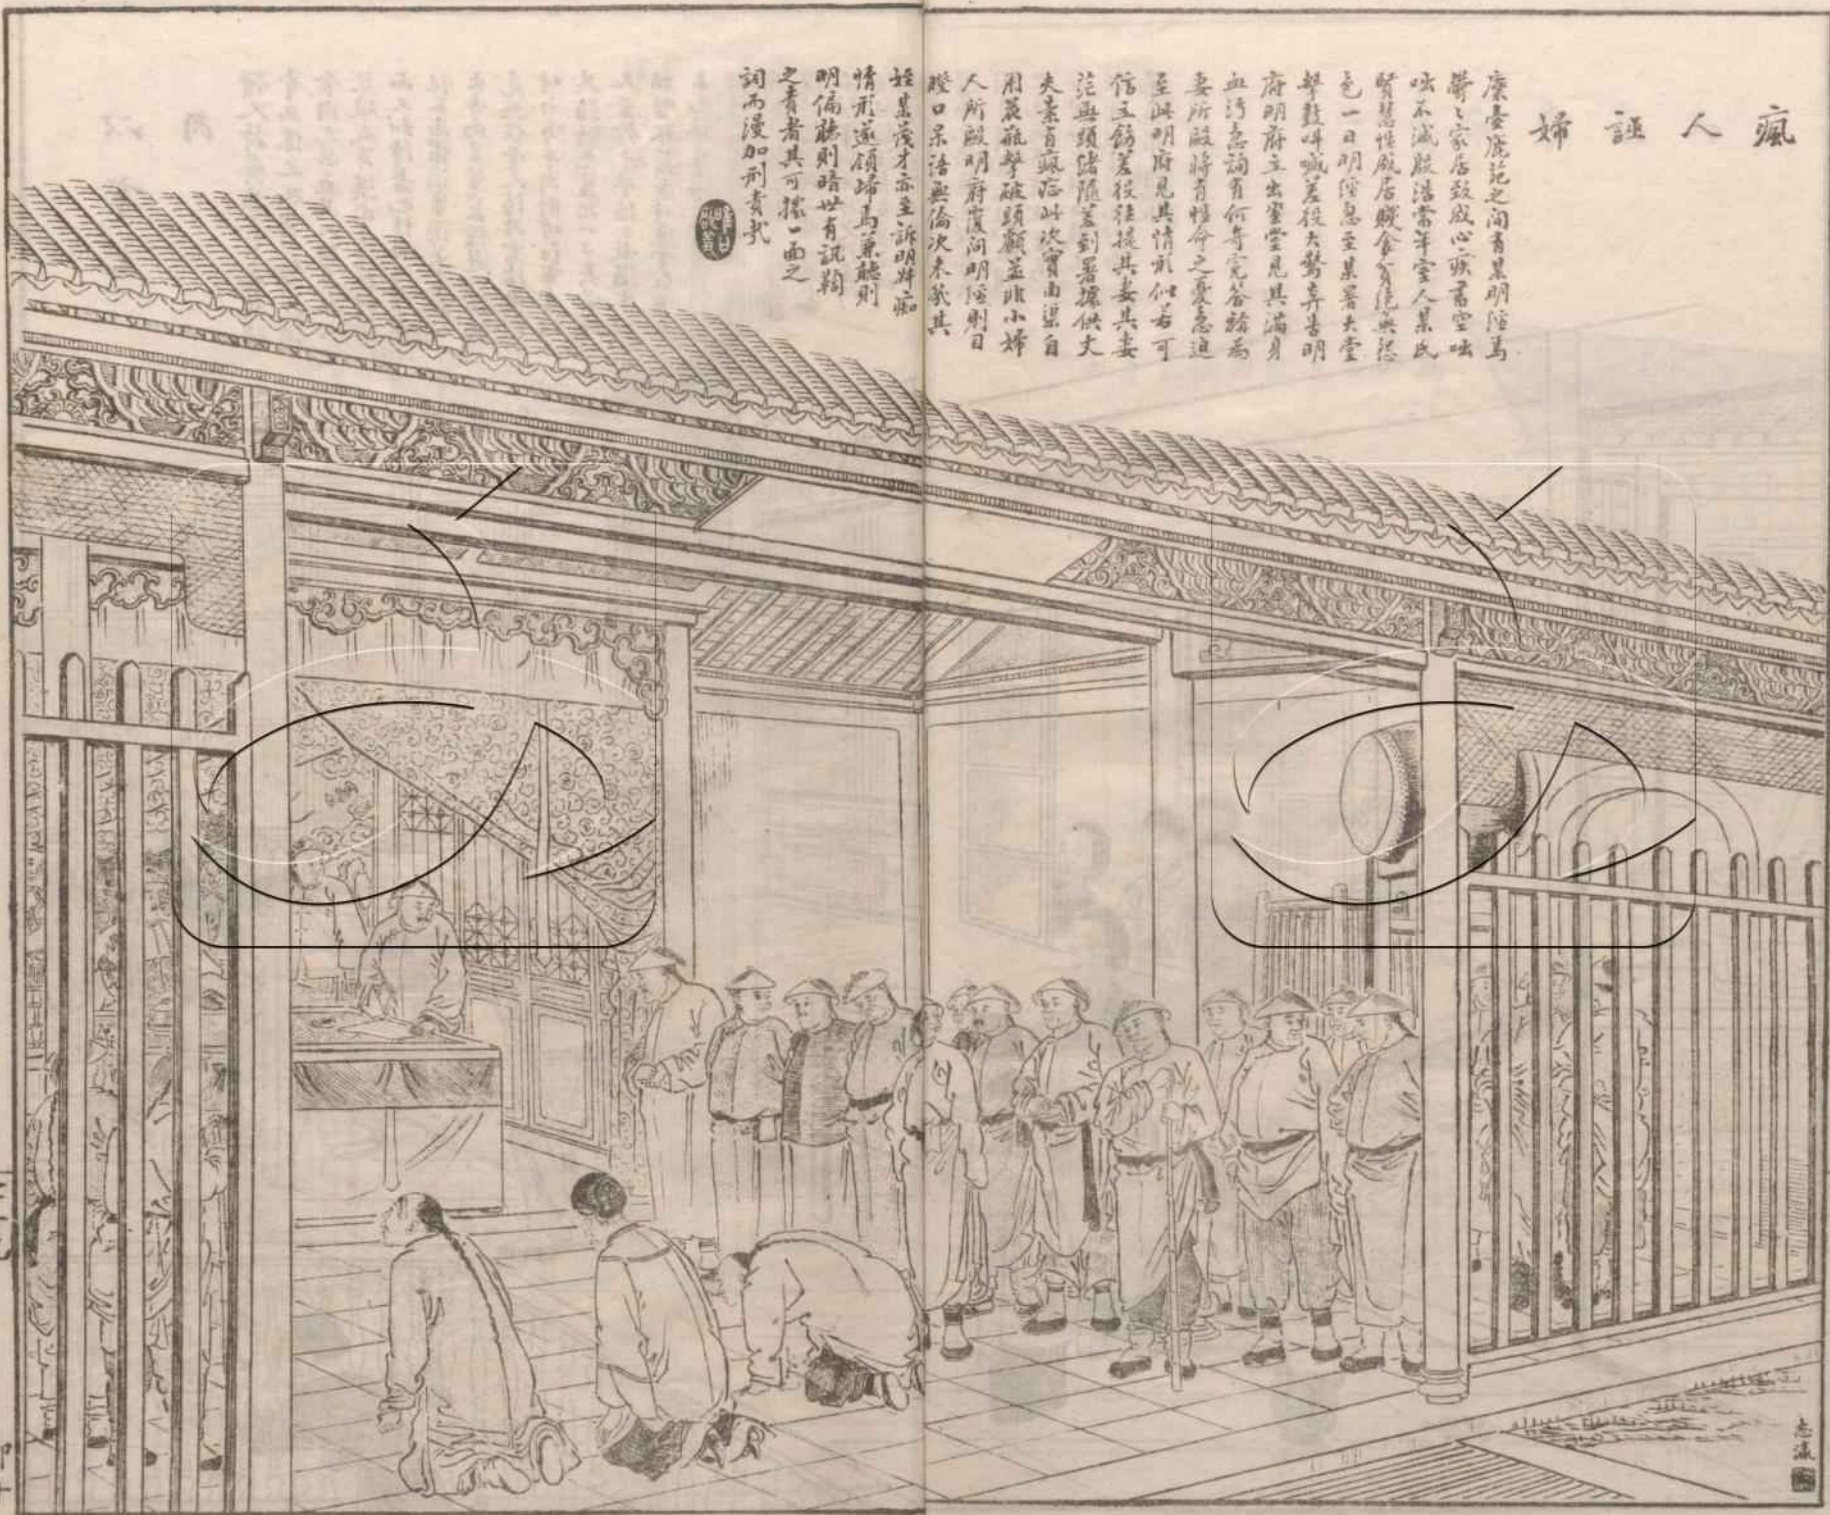 瘋人誣婦
麋臺鹿苑之間有某明經焉
鬱鬱家居致成心疾書空咄
咄不減殷浩當年室人某氏
賢慧性成居賤食貧絕無怨
色一日明經忽至某署大堂
擊鼓呌喊差役大驚弃告明
府明府立出坐堂見其滿身
血污急詢有何奇冤答稱為
妻所毆將有性命之憂急迫
至此明府見其情形似若可
信立飭差役往提其妻其妻
茫無頭緒隨差到署據供丈
夫素有瘋症此次實由渠自
用瓷瓶擊破頭顱並非小婦
人所毆明府復問明經則目
瞪口呆語無倫次未幾其
姪某茂才亦至訴明叔痴
情形遂領歸焉兼聽則
明偏聽則暗世有訊鞫
之責者其可據一面之
詞而漫加刑責哉
志瀛